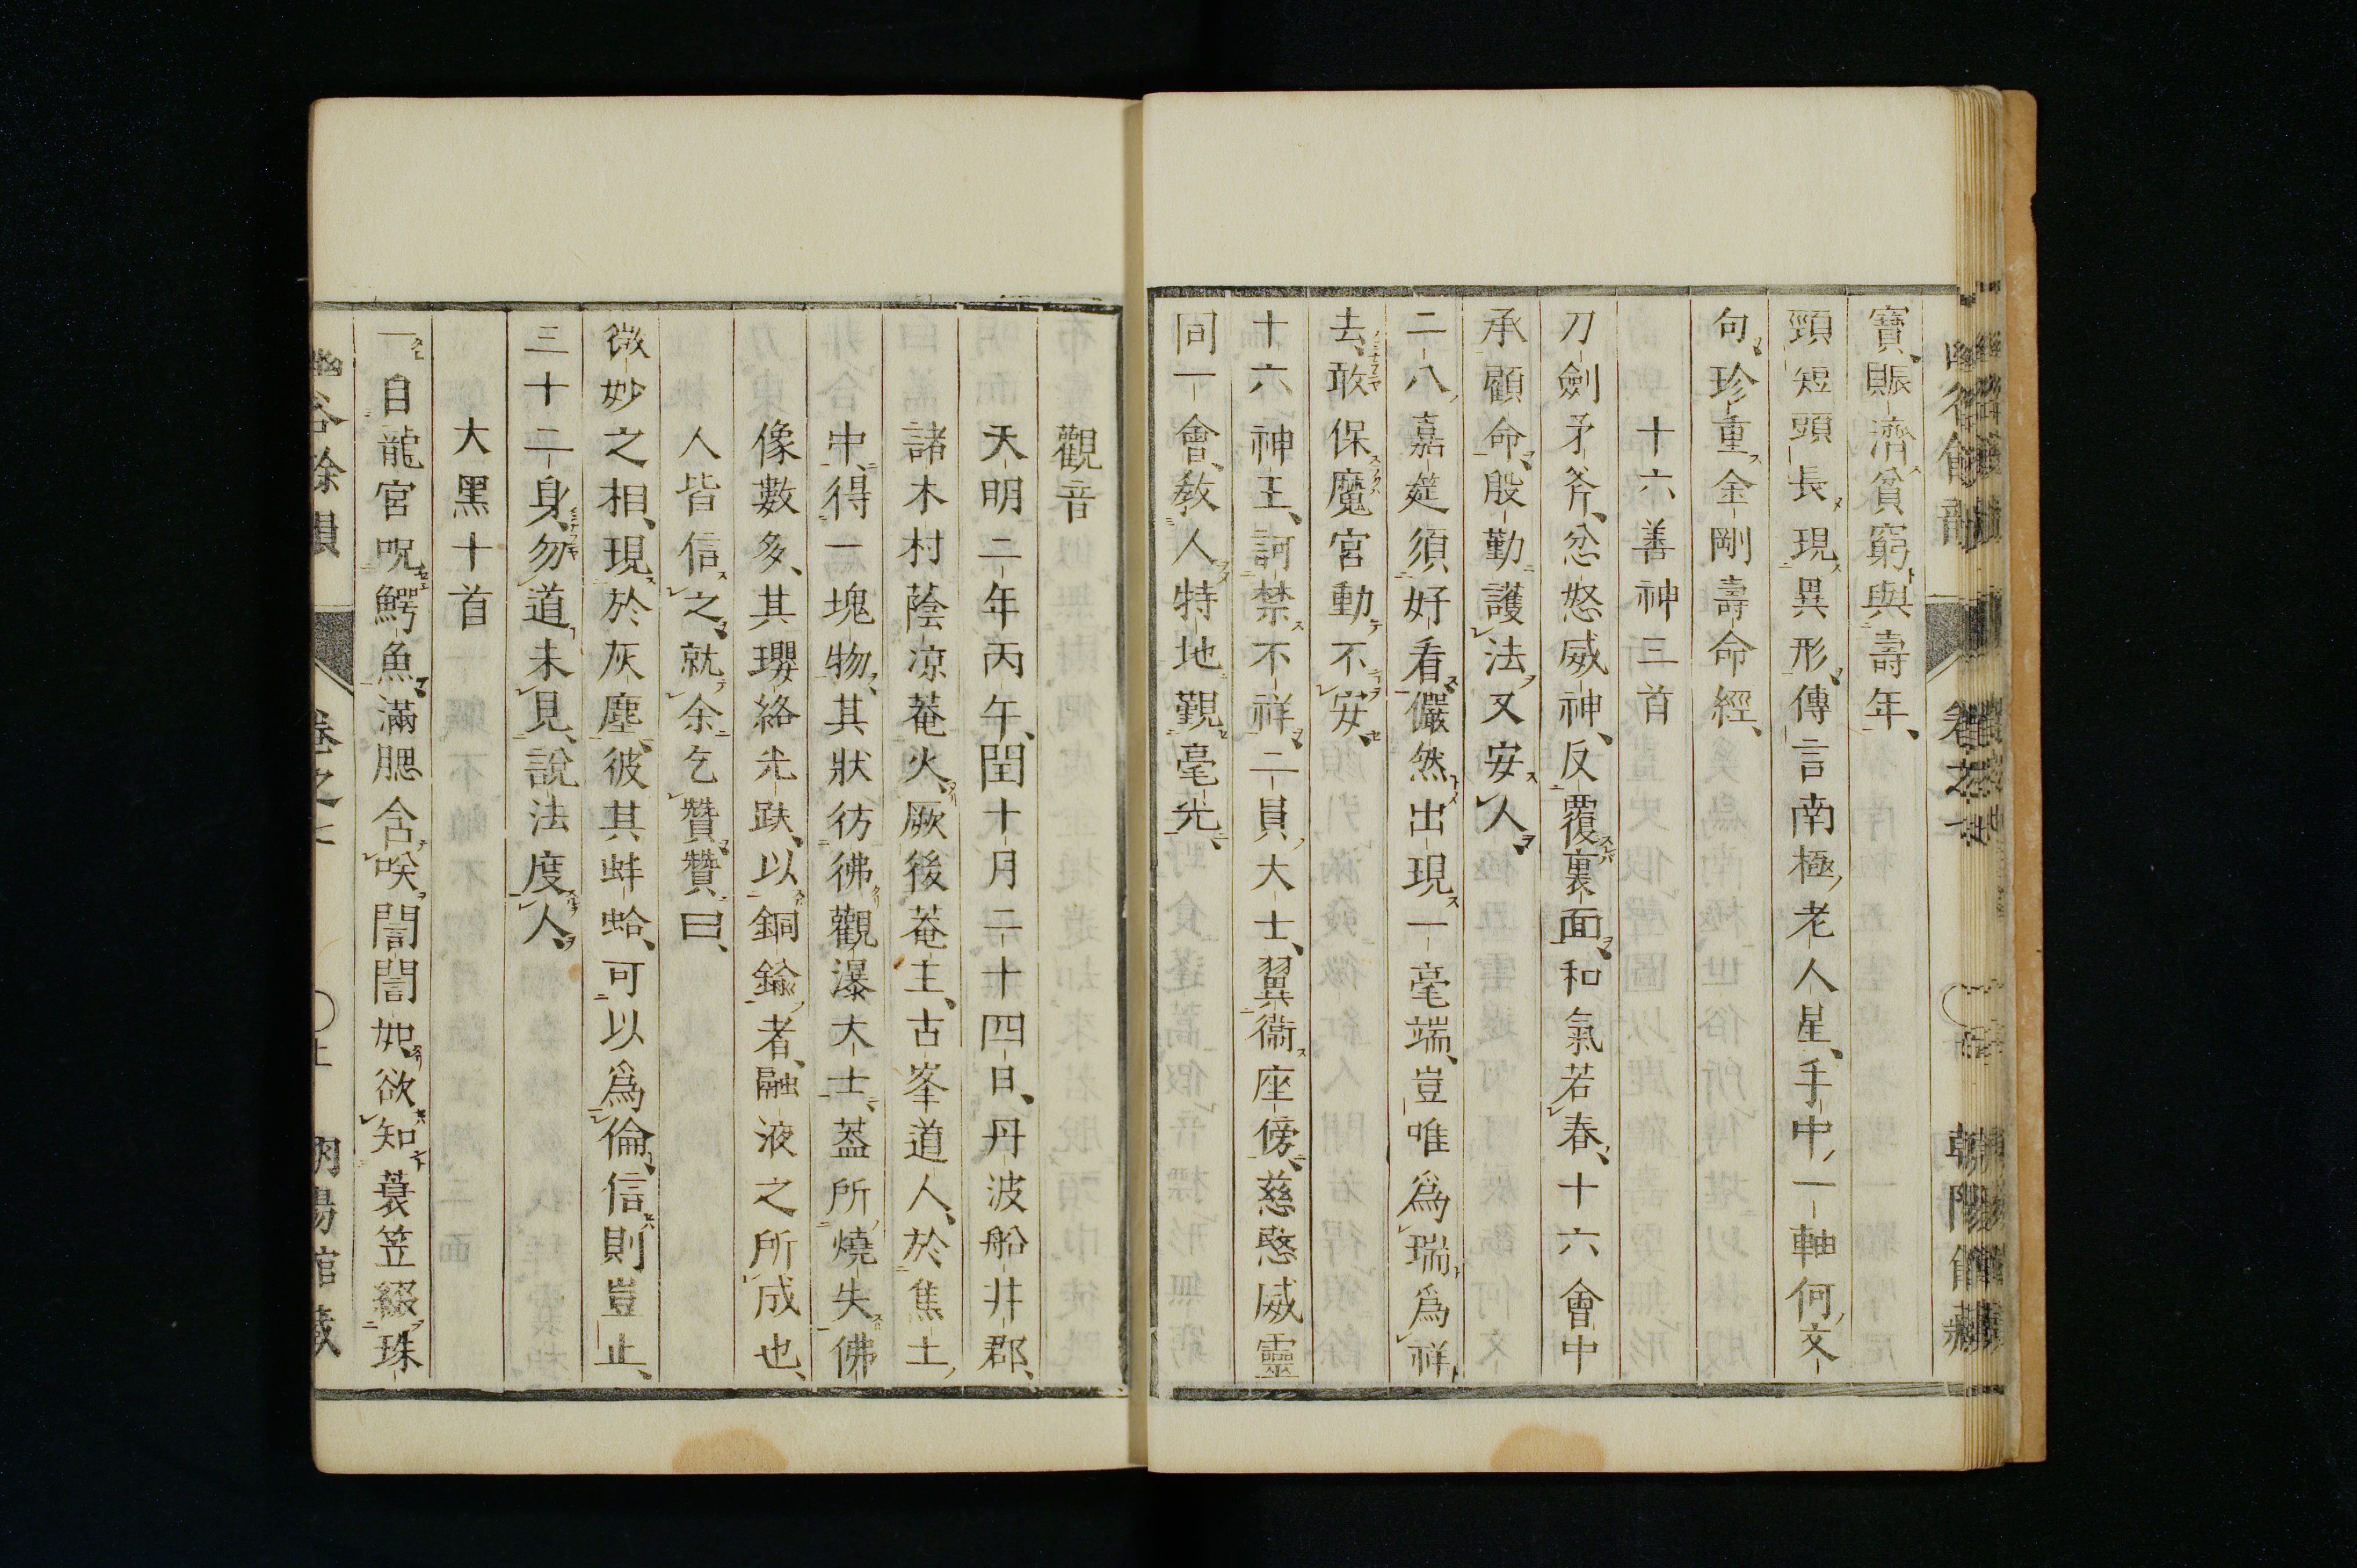 寶、賑濟貧窮與壽年、
頸短頭長現異形、傳言南極老人星、手中一軸何文
句、珍重金剛壽命經、
十六善神三首
刀劍矛斧、忿怒威神、反覆裏面、和氣若春、十六會中
承顧命、殷勤護法又安人、
二八嘉筵須好看、儼然出現一毫端、豈唯爲瑞爲祥
去、敢保魔宮動不安、
十六神王、訶禁不祥、二員大士、翼衞座傍、慈愍威靈
同一會、教人特地覲毫光、
觀音
天明二年丙午、閏十月二十四日、丹波船井郡、
諸木村蔭凉菴火、厥後菴主、古峯道人、於焦土
中、得一塊物、其狀彷彿觀瀑大士、葢所燒失佛
像數多、其瓔絡光趺、以銅鍮者、融液之所成也、
人皆信之、就余乞贊、贊曰、
微妙之相、現於灰塵、彼其蚌蛤、可以爲倫、信則豈止、
三十二身、勿道未見、說法度人、
大黑十首
一自龍宮呪鰐魚、滿腮含咲誾誾如、欲知蓑笠綴珠
幽谷餘韻 卷之七 朝陽館藏